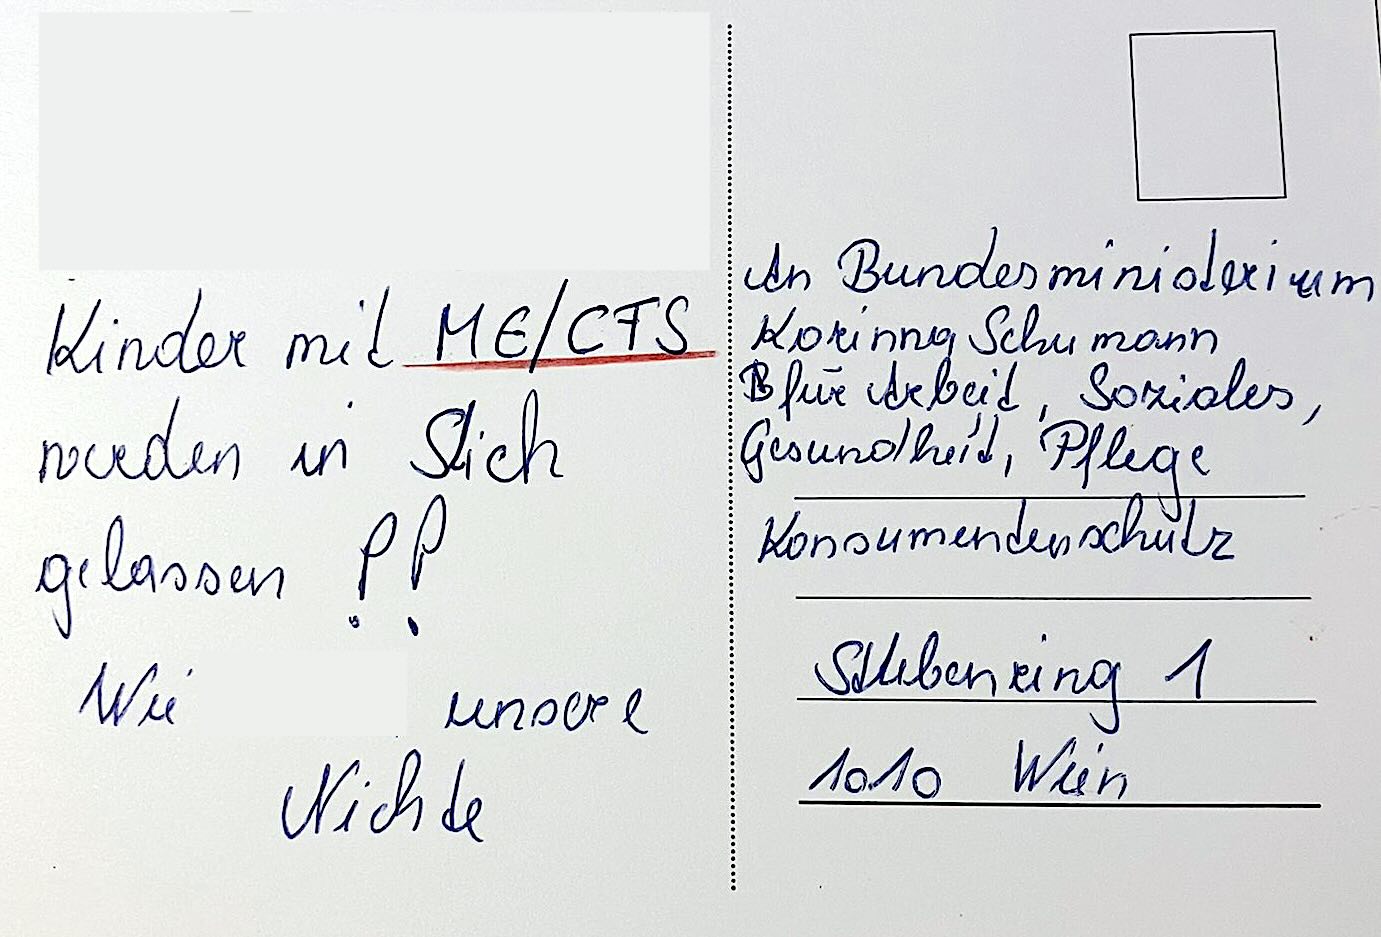 Kinder mit ME/CFS
werden in Stich
gelassen !!
Wie unsere
Nichte
An Bundesministerium
Korinna Schumann
B für Arbeit, Soziales,
Gesundheit, Pflege
Konsumentenschutz
Stubenring 1
1010 Wien